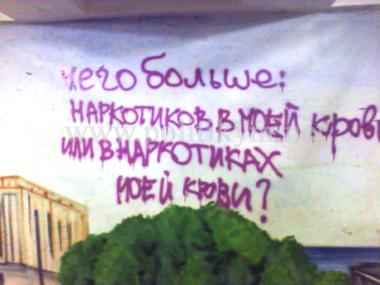 чего больше:
НАРКОТИКОВ В МОЕЙ крови
ИЛИ В НАРКОТИКАХ
МОЕЙ КРОВИ?